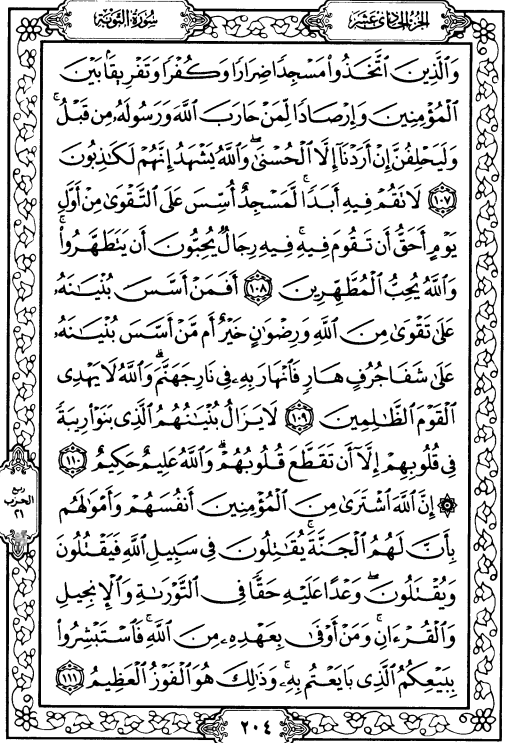 سُورَةُ التَّوْبَةِ
الجُزْءُ الحَادِي عَشَرَ
وَالَّذِينَ اتَّخَذُوا مَسْجِدًا ضِرَارًا وَكُفْرًا وَتَفْرِيقًا بَيْنَ
الْمُؤْمِنِينَ وَإِرْصَادًا لِمَنْ حَارَبَ اللَّهَ وَرَسُولَهُ مِن قَبْلُ ۚ
وَلَيَحْلِفُنَّ إِنْ أَرَدْنَا إِلَّا الْحُسْنَىٰ ۖ وَاللَّهُ يَشْهَدُ إِنَّهُمْ لَكَاذِبُونَ
١٠٧ لَا تَقُمْ فِيهِ أَبَدًا ۚ لَّمَسْجِدٌ أُسِّسَ عَلَى التَّقْوَىٰ مِنْ أَوَّلِ
يَوْمٍ أَحَقُّ أَن تَقُومَ فِيهِ ۚ فِيهِ رِجَالٌ يُحِبُّونَ أَن يَتَطَهَّرُوا ۚ
وَاللَّهُ يُحِبُّ الْمُطَّهِّرِينَ ١٠٨ أَفَمَنْ أَسَّسَ بُنْيَانَهُ
عَلَىٰ تَقْوَىٰ مِنَ اللَّهِ وَرِضْوَانٍ خَيْرٌ أَم مَّنْ أَسَّسَ بُنْيَانَهُ
عَلَىٰ شَفَا جُرُفٍ هَارٍ فَانْهَارَ بِهِ فِي نَارِ جَهَنَّمَ ۗ وَاللَّهُ لَا يَهْدِي
الْقَوْمَ الظَّالِمِينَ ١٠٩ لَا يَزَالُ بُنْيَانُهُمُ الَّذِي بَنَوْا رِيبَةً
فِي قُلُوبِهِمْ إِلَّا أَن تَقَطَّعَ قُلُوبُهُمْ ۗ وَاللَّهُ عَلِيمٌ حَكِيمٌ ١١٠
۞ إِنَّ اللَّهَ اشْتَرَىٰ مِنَ الْمُؤْمِنِينَ أَنفُسَهُمْ وَأَمْوَالَهُم
بِأَنَّ لَهُمُ الْجَنَّةَ ۚ يُقَاتِلُونَ فِي سَبِيلِ اللَّهِ فَيَقْتُلُونَ
وَيُقْتَلُونَ ۖ وَعْدًا عَلَيْهِ حَقًّا فِي التَّوْرَاةِ وَالْإِنجِيلِ
وَالْقُرْءَانِ ۚ وَمَنْ أَوْفَىٰ بِعَهْدِهِ مِنَ اللَّهِ ۚ فَاسْتَبْشِرُوا
بِبَيْعِكُمُ الَّذِي بَايَعْتُم بِهِ ۚ وَذَٰلِكَ هُوَ الْفَوْزُ الْعَظِيمُ ١١١
ربع
الحزب
٢١
٢٠٤